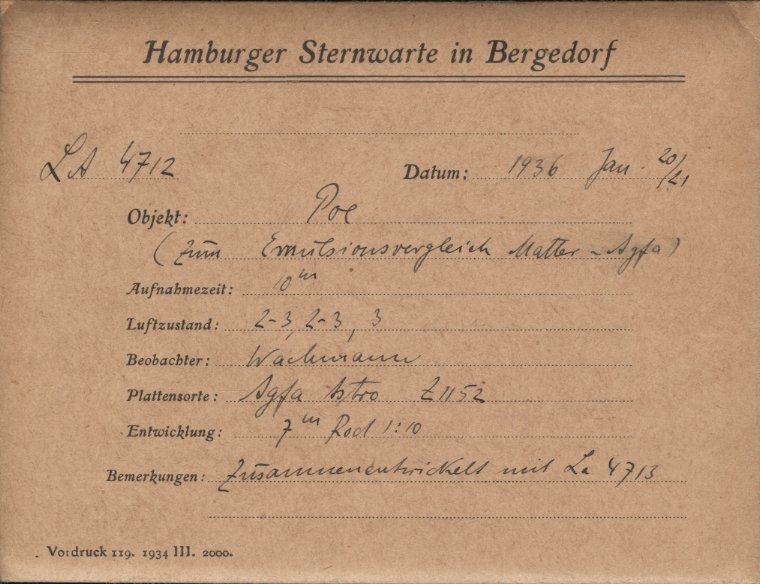 Hamburger Sternwarte in Bergedorf
LA 4712 Datum: 1936 Jan. 20/21
Objekt: Poe
(zum Emulsionsvergleich Matter - Agfa)
Aufnahmezeit: 10m
Luftzustand: 2-3, 2-3, 3
Beobachter: Wachmann
Plattensorte: Agfa Astro Z1152
Entwicklung: 7m Rod 1:10
Bemerkungen: Zusammenentwickelt mit La 4713
Vordruck 119. 1934 III. 2000.